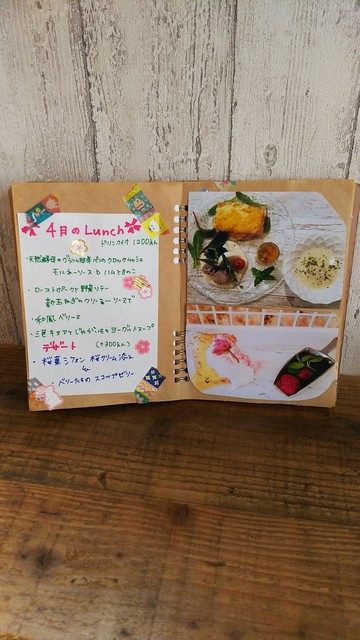 4月のLunch
ドリンク付 1200えん
・天然酵母のクロックムッシュ
モルネーソース と ハムときのこ
・ローストポークと野菜ソテー
新玉ねぎのクリーミーソースで
・和風ピクルス
・三色キヌアとじゃがいものヨーグルトスープ
デザート
(+300えん)
・桜葉シフォン 桜クリーム添え
&
・ベリーたちの スコップゼリー